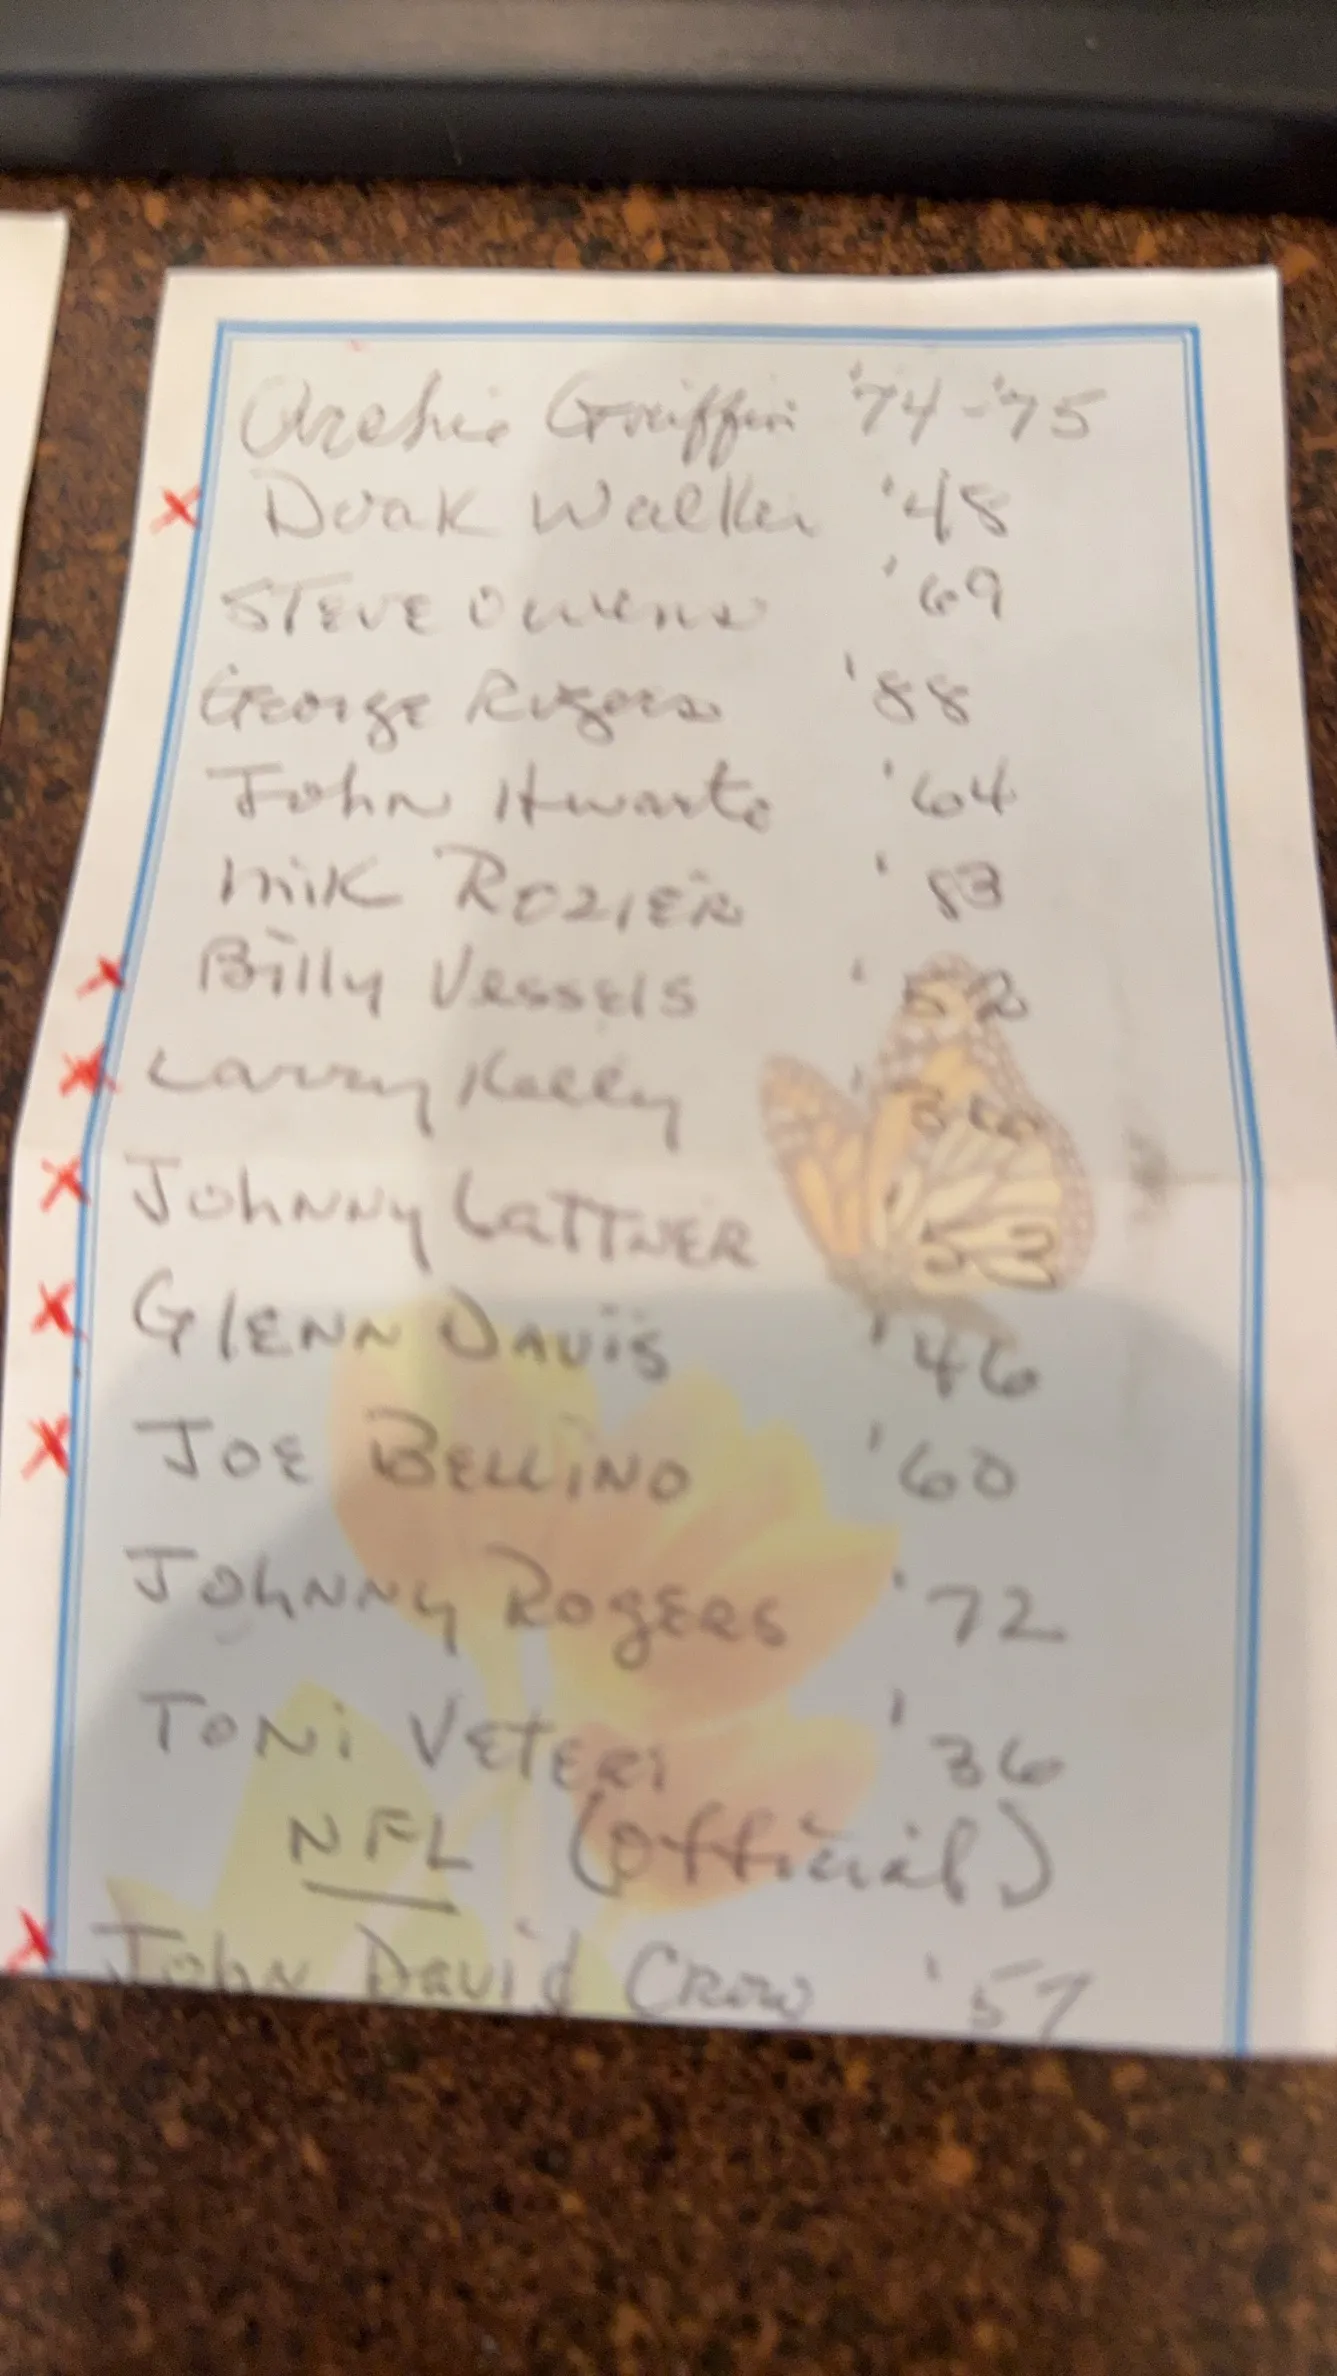 Archie Griffin '74-'75
X Doak Walker '48
STEVE Owens '69
George Rogers '88
John Hwarte '64
Mik ROZIER '83
X Billy Vessels '52
X Larry Kelly '36
X JOHNNY LATTNER '53
X GlENN DAViS '46
X JOE BELLiNO '60
JOhNNY ROgERS '72
TONi VETERi '36
NFL (official)
X John David Crow '57